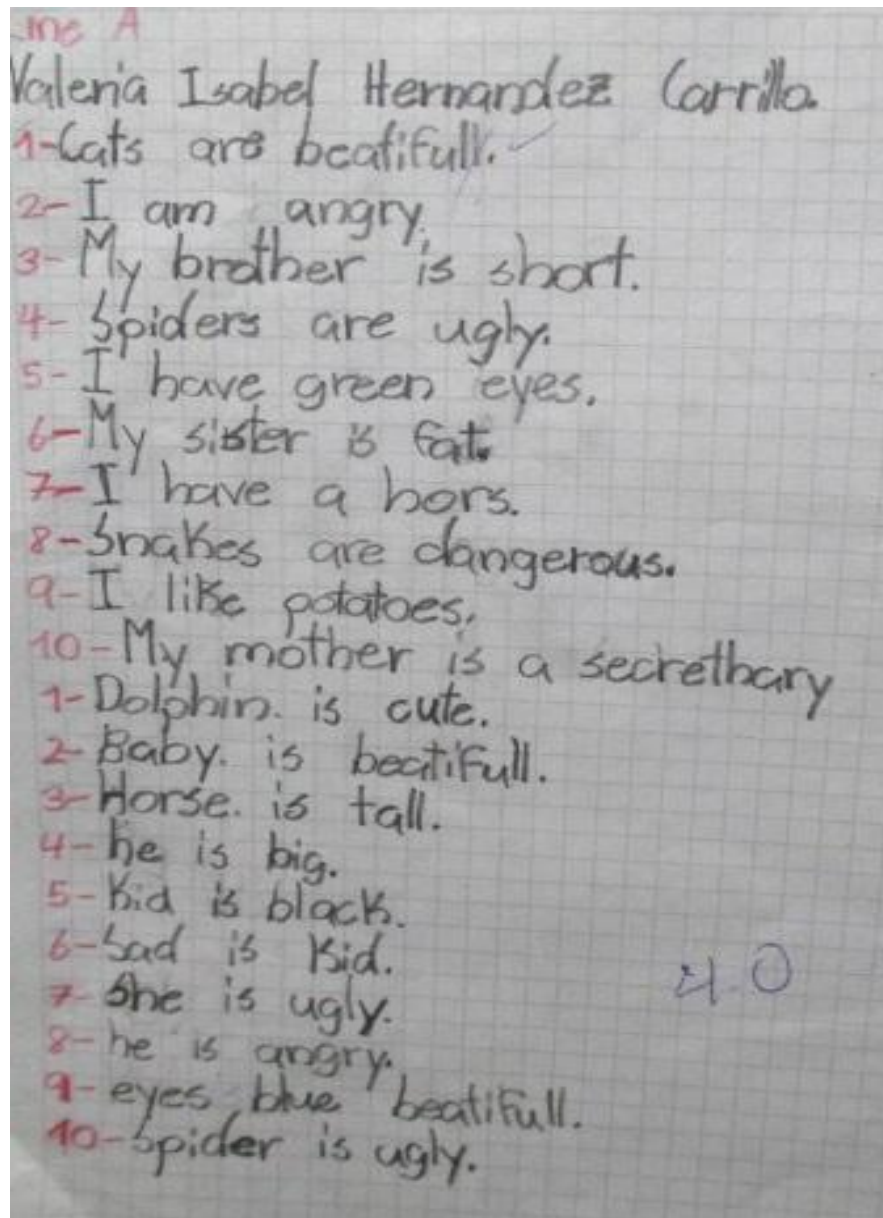 Line A
Valeria Isabel Hernandez Carrillo.
1-Cats are beatifull.
2-I am angry.
3-My brother is short.
4-Spiders are ugly.
5-I have green eyes.
6-My sister is fat.
7-I have a hors.
8-Snakes are dangerous.
9-I like potatoes.
10-My mother is a secrethary
1-Dolphin. is cute.
2-Baby. is beatifull.
3-Horse. is tall.
4-he is big.
5-Kid is black.
6-Sad is Kid.
7-She is ugly.
8-he is angry.
9-eyes blue beatifull.
10-Spider is ugly.
4.0